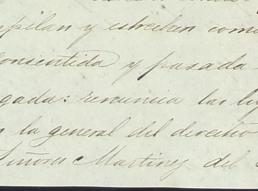 y estrechen com
consentida y pasada
gada: renuncia las ley
la general del derecho
Señores Martinez del